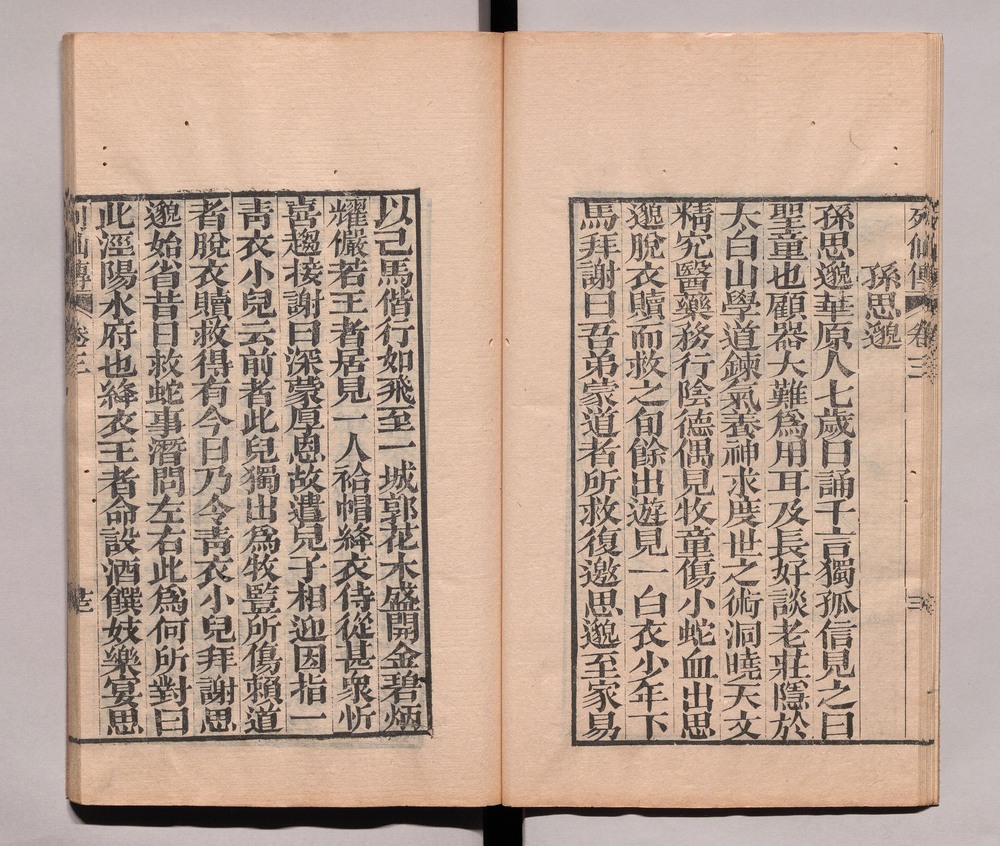 列仙傳
卷三
三
孫思邈
孫思邈華原人七歲日誦千言獨孤信見之曰
聖童也顧器大難為用耳及長好談老莊隱於
太白山學道鍊氣養神求度世之術洞曉天文
精究醫藥務行陰德偶見牧童傷小蛇血出思
邈脫衣贖而救之旬餘出遊見一白衣少年下
馬拜謝曰吾弟蒙道者所救復邀思邈至家易
以己馬偕行如飛至一城郭花木盛開金碧炳
耀儼若王者居見一人袷帽絳衣侍從甚衆忻
喜趨接謝曰深蒙厚恩故遣兒子相迎因指一
青衣小兒云前者此兒獨出為牧豎所傷賴道
者脫衣贖救得有今日乃令青衣小兒拜謝思
邈始省昔日救蛇事潛問左右此為何所對曰
此涇陽水府也絳衣王者命設酒饌妓樂宴思
列仙傳
卷三